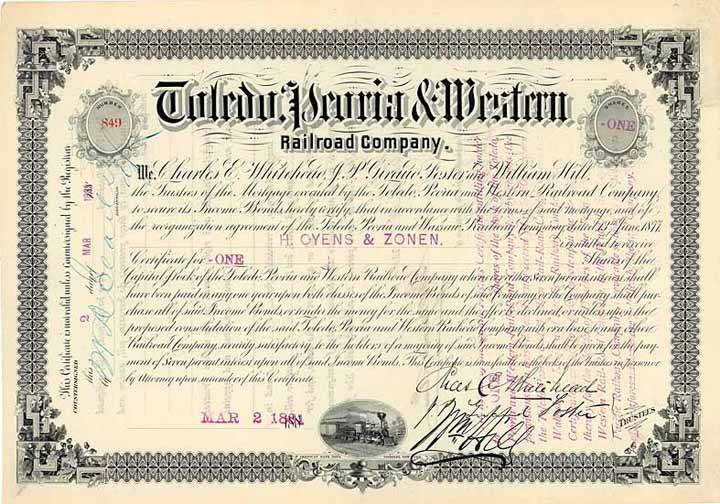 NUMBER
849
SHARES
-ONE
Toledo, Peoria & Western
Railroad Company.
We, Charles E. Whitehead, J. P. Giraud Foster and William Hill,
the Trustees of the Mortgage executed by the Toledo, Peoria and Western Railroad Company,
to secure its Income Bonds, hereby certify, that in accordance with the terms of said mortgage, and of
the reorganization agreement of the Toledo, Peoria and Warsaw Railway Company, dated June, 1877,
H. OYENS & ZONEN.
entitled to receive
Certificate for -ONE Shares of the
Capital Stock of the Toledo, Peoria and Western Railroad Company whenever the seven per cent. interest shall
have been paid in any one year upon both classes of the Income Bonds of said Company or the Company shall pur-
chase all of said Income Bonds or tender the money for the same and the offer be declined, or unless upon the
proposed consolidation of the said Toledo, Peoria and Western Railroad Company with or a lease to any other
Railroad Company, security satisfactory to the holders of a majority of said Income Bonds shall be given for the pay-
ment of seven per cent interest upon all of said Income Bonds. This Certificate is transferable on the books of the trustees in person or
by Attorney upon surrender of this Certificate.
MAR 2 1881
188
Chas E Whitehead
Foster
Wm Hill
TRUSTEES
This Certificate is not valid unless Countersigned by the
COUNTERSIGNED
this 2 day of MAR